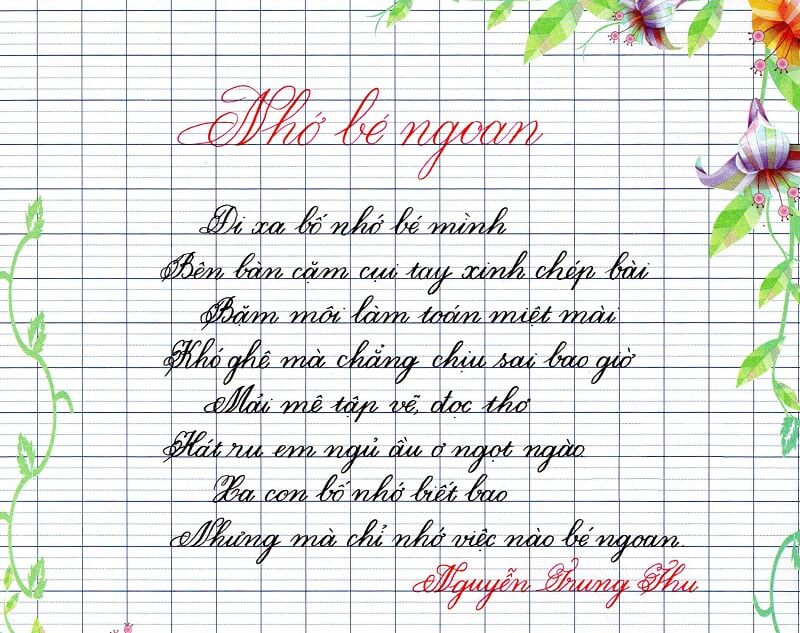 Nhớ bé ngoan
Đi xa bố nhớ bé mình
Bên bàn cặm cụi tay xinh chép bài
Bặm môi làm toán miệt mài
Khó ghê mà chẳng chịu sai bao giờ
Mải mê tập vẽ, đọc thơ
Hát ru em ngủ ầu ơ ngọt ngào
Xa con bố nhớ biết bao
Nhưng mà chỉ nhớ việc nào bé ngoan.
Nguyễn Trung Thu